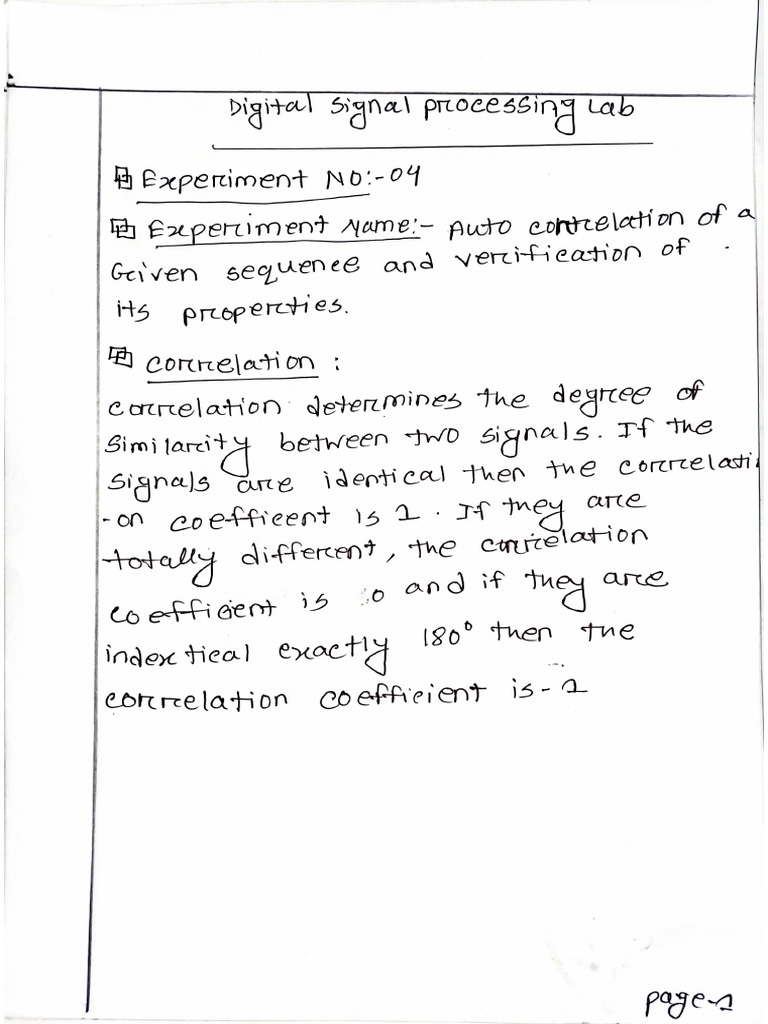 Digital Signal Processing Lab
Experiment No:-04
Experiment Name:- Auto correlation of a
Given sequence and verification of
its properties.
Correlation :
correlation determines the degree of
similarity between two signals. If the
signals are identical then the correlati
-on coefficent is 1. If they are
totally different, the correlation
coefficient is 0 and if they are
indextical exactly 180° then the
correlation coefficient is -1
page-1